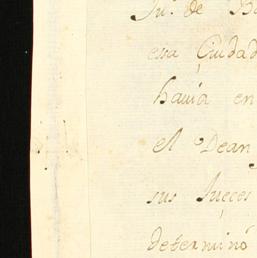 Ju.º de Ba
essa Ciudad
havia en
el Dean
sus Jueces
determinó